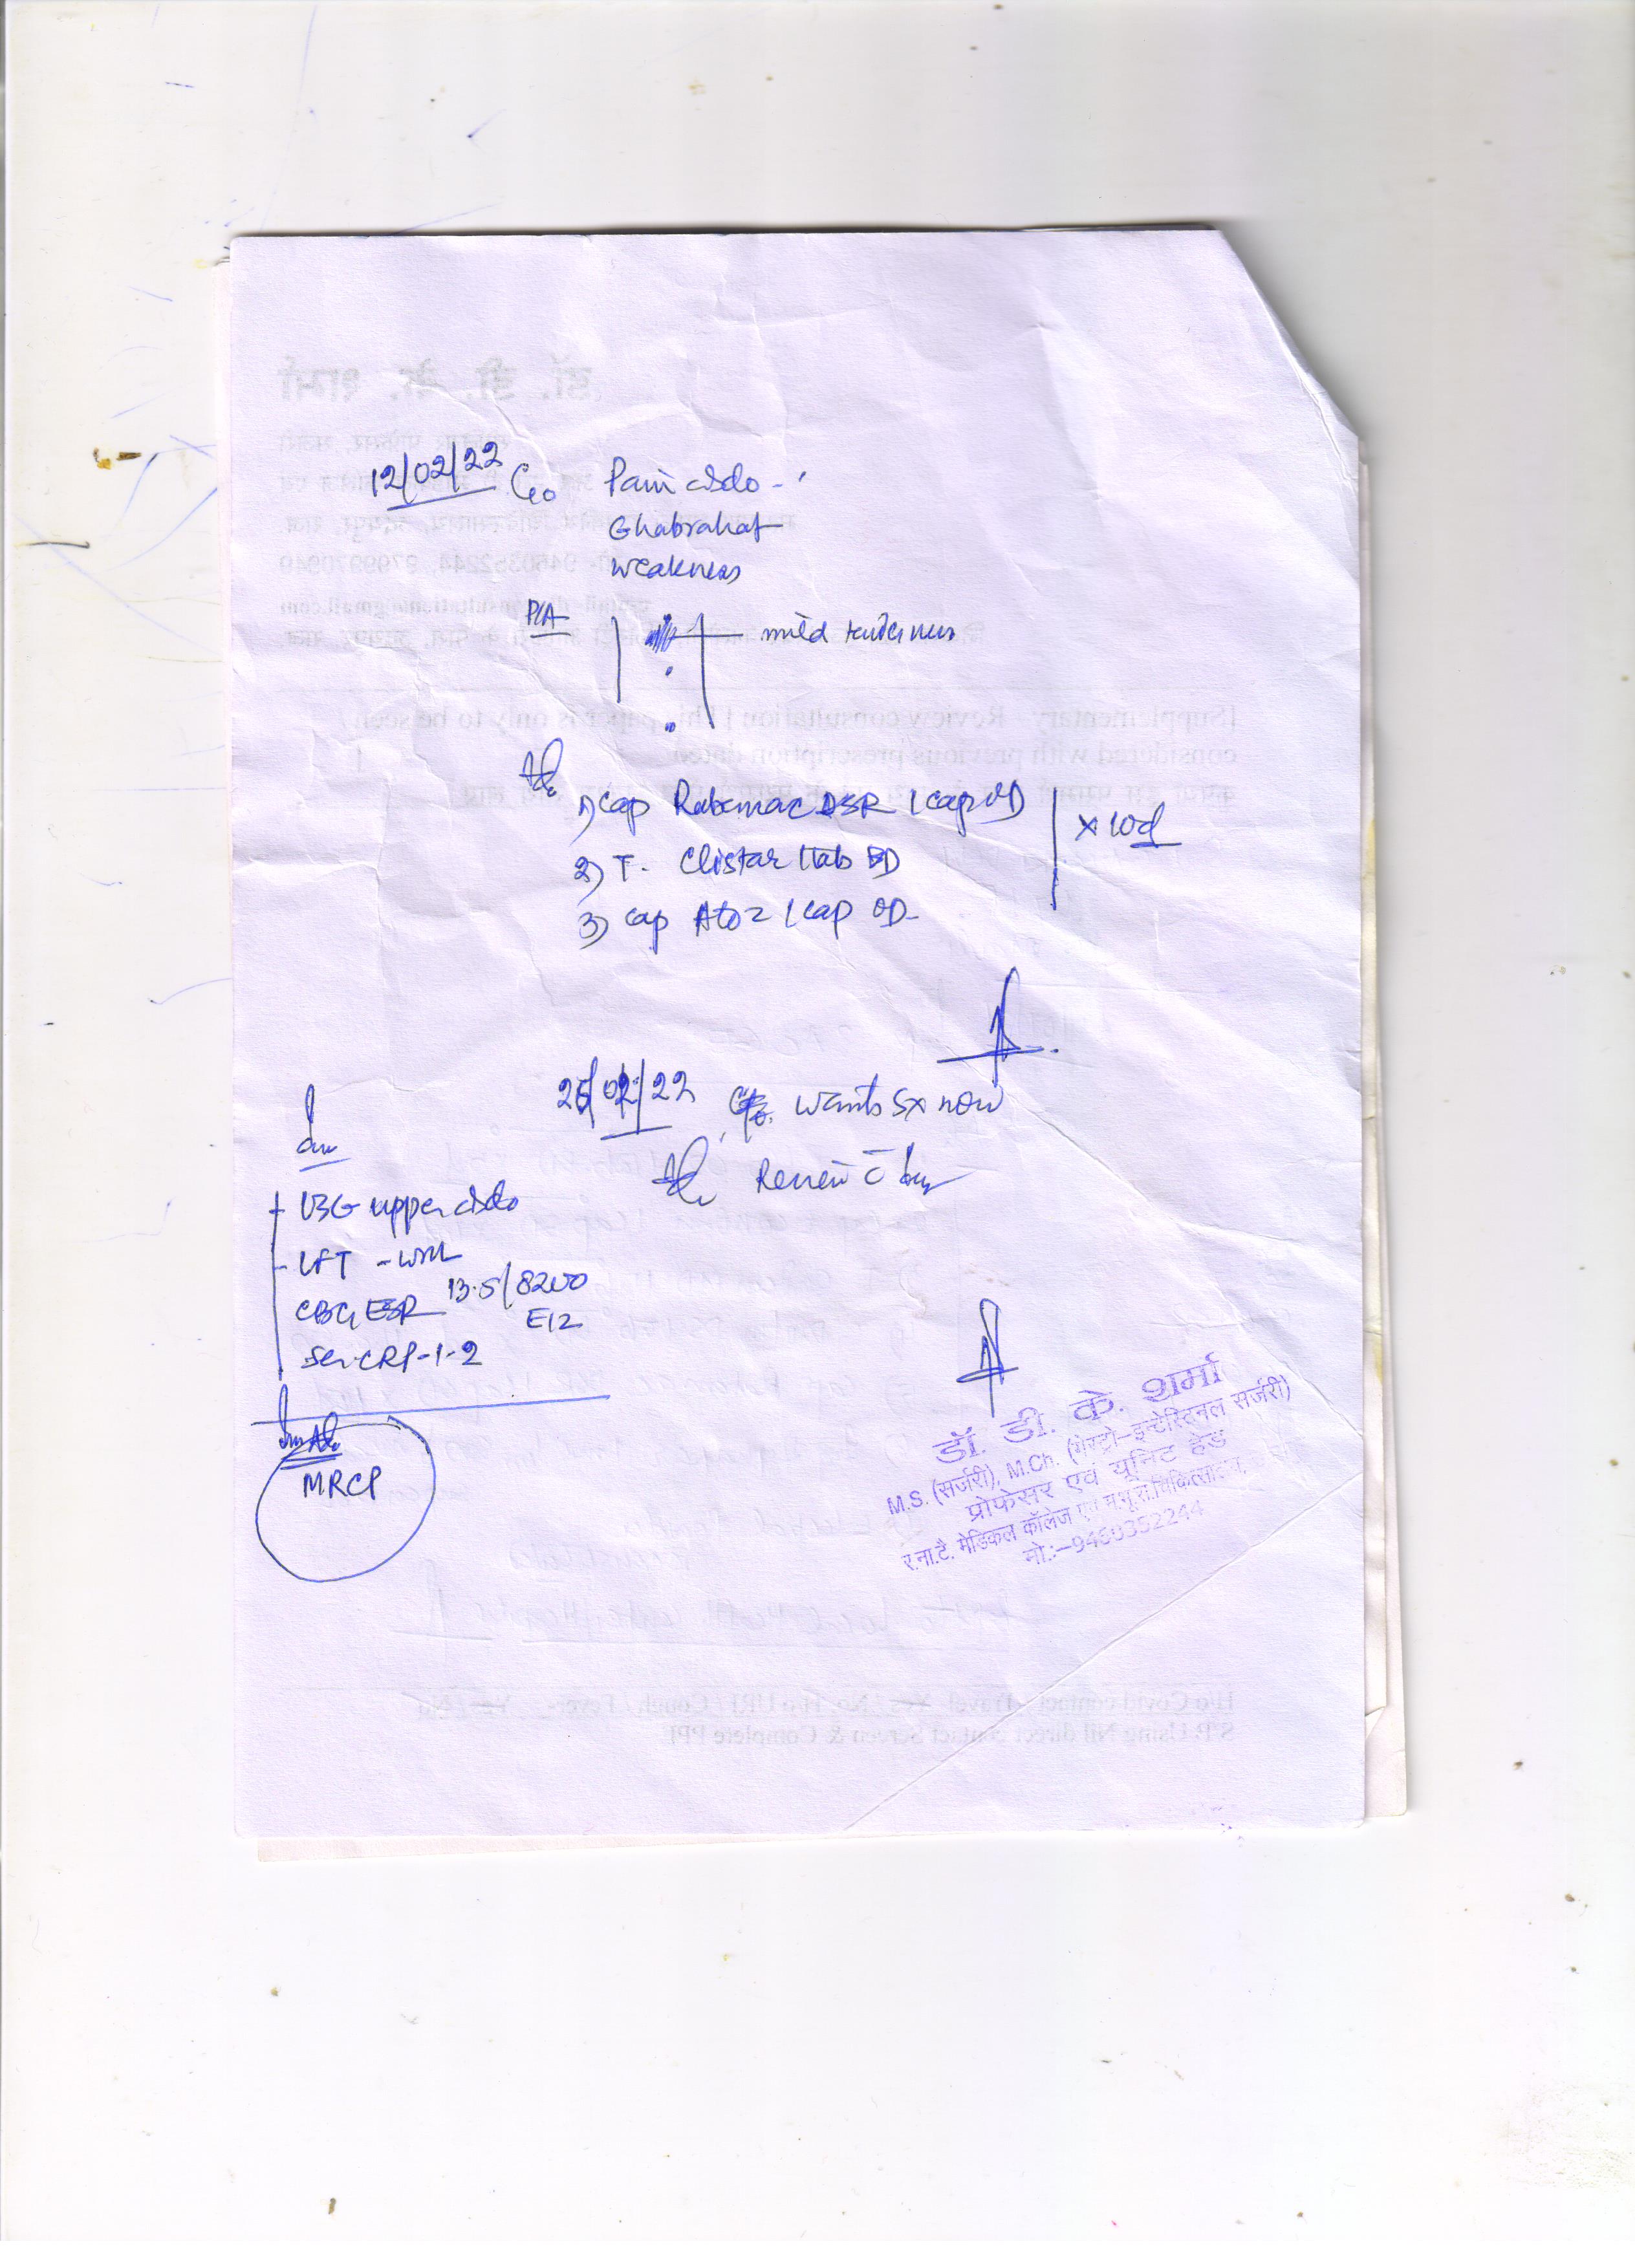 12/02/22 C/o Pain abdo -
Ghabrahat
weakness
P/A
mild tenderness
Adv
1) Cap Rabemac DSR 1 cap OD
x 10d
2) T. Clistar 1 tab BD
3) cap A to Z 1 cap OD
26/02/22 wants Sx now
Adv Review c̄
Inv
- USG upper abdo
- LFT - WNL
CBC, ESR 13.5/8200
E12
Ser. CRP - 1.2
MRCP
डॉ. डी. के. शर्मा
M.S. (सर्जरी), M.Ch. (गेस्ट्रो-इन्टेस्टिनल सर्जरी)
प्रोफेसर एवं यूनिट हेड
र.ना.टै. मेडिकल कॉलेज एवं म.भू.रा.चिकित्सालय,
मो.:-9460352244